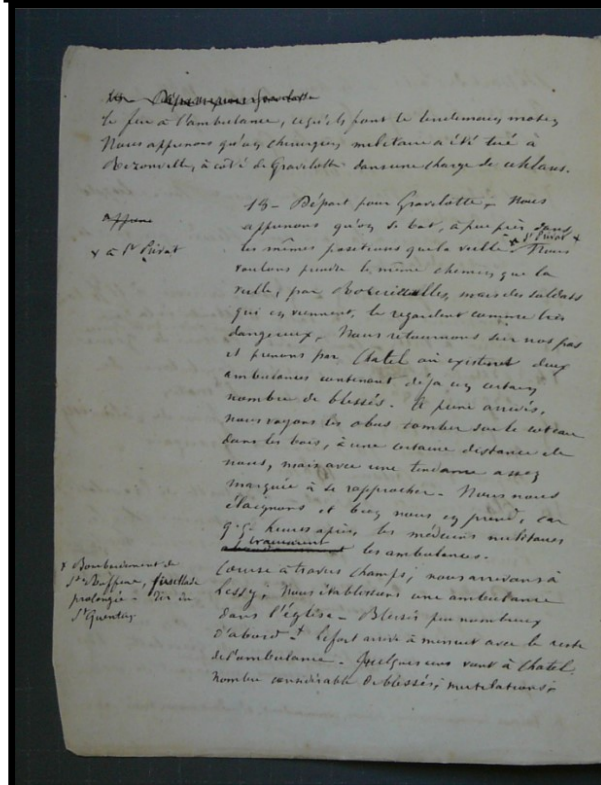 18 Départ pour Gravelotte
le feu à l'ambulance, ce qu'ils font le lendemain matin
Nous apprenons qu'un chirurgien militaire a été tué à
Rezonville, à côté de Gravelotte dans une charge de uhlans.
18 - Départ pour Gravelotte. Nous
apprenons qu'on se bat, à peu près dans
les mêmes positions que la veille x St Privat x Nous
voulons prendre le même chemin que la
veille, par Rozerieulles, mais des soldats
qui en viennent, le regardent comme très
dangereux. Nous retournons sur nos pas
et prenons par Chatel où existent deux
ambulances contenant déjà un certain
nombre de blessés. A peine arrivés,
nous voyons les obus tomber sur le coteau
dans les bois, à une certaine distance de
nous, mais avec une tendance assez
marquée à se rapprocher - Nous nous
éloignons et bien nous en prend, car
q.q. heures après, les médecins militaires
évacuaient les ambulances.
Course à travers champs; nous arrivons à
Lessy; Nous établissons une ambulance
dans l'église - Blessés peu nombreux
d'abord + Lefort arrive à minuit avec le reste
de l'ambulance. Quelques uns vont à Chatel.
Nombre considérable de blessés; mutilations;
x à St Privat
x Bombardement de
Ste Ruffine, fusillade
prolongée - Tir du
St Quentin